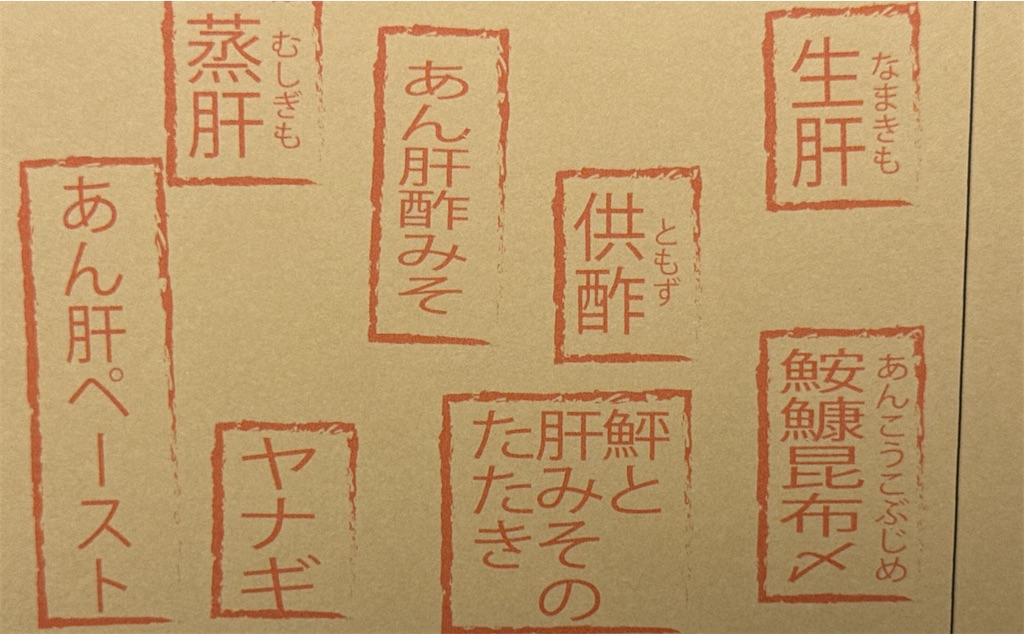 生肝
なまきも
鮟鱇昆布〆
あんこうこぶじめ
供酢
ともず
鮃と
肝みその
たたき
あん肝酢みそ
蒸肝
むしぎも
ヤナギ
あん肝ペースト